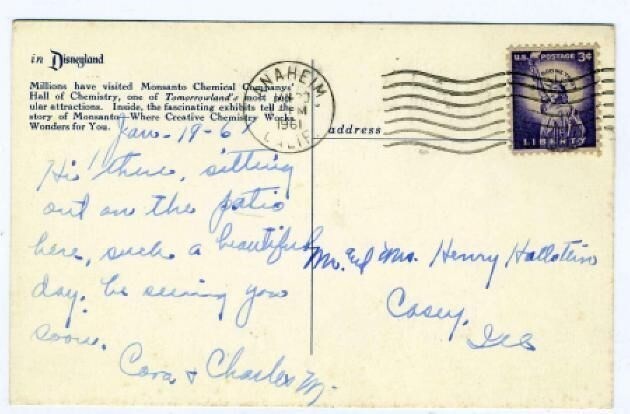 in Disneyland
Millions have visited Monsanto Chemical Companys'
Hall of Chemistry, one of Tomorrowland's most pop-
ular attractions. Inside, the fascinating exhibits tell the
story of Monsanto—Where Creative Chemistry Works
Wonders for You.
Jan-19-61
Hi there, sitting
out on the patio
here, such a beautiful
day. be seeing you
soon.
Cora & Charles M.
ANAHEIM,
JAN
M
1961
CALIF.
address
U.S. POSTAGE 3¢
IN GOD WE TRUST
LIBERTY
Mr. and Mrs. Henry Hallstein
Casey,
Ills